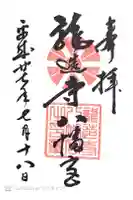 奉拝
龍造寺八幡宮
平成廿七年七月十八日